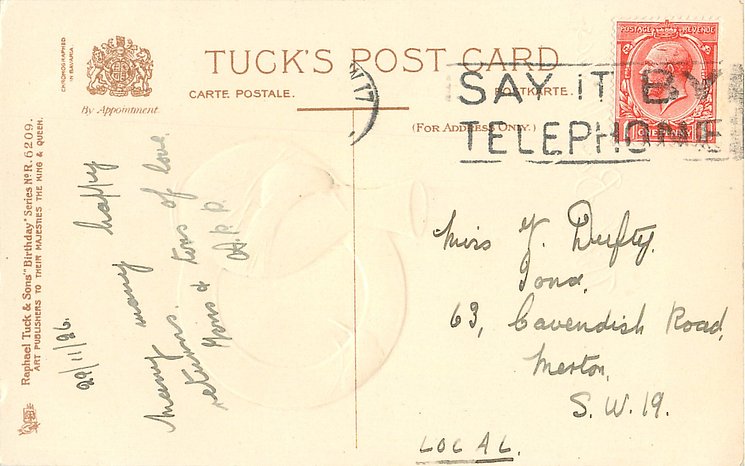 TUCK'S POST CARD
CARTE POSTALE.
POSTKARTE.
(FOR ADDRESS ONLY.)
CHROMOGRAPHED
IN BAVARIA
By Appointment.
Raphael Tuck & Sons' "Birthday" Series No R. 6209.
ART PUBLISHERS TO THEIR MAJESTIES THE KING & QUEEN.
SAY IT BY
TELEPHONE
POSTAGE REVENUE
ONE PENNY
29/11/26.
Many many happy
returns.
Tons & tons of love.
Miss Y. Dufty,
Iona,
63, Cavendish Road,
Merton,
S.W.19.
LOCAL.